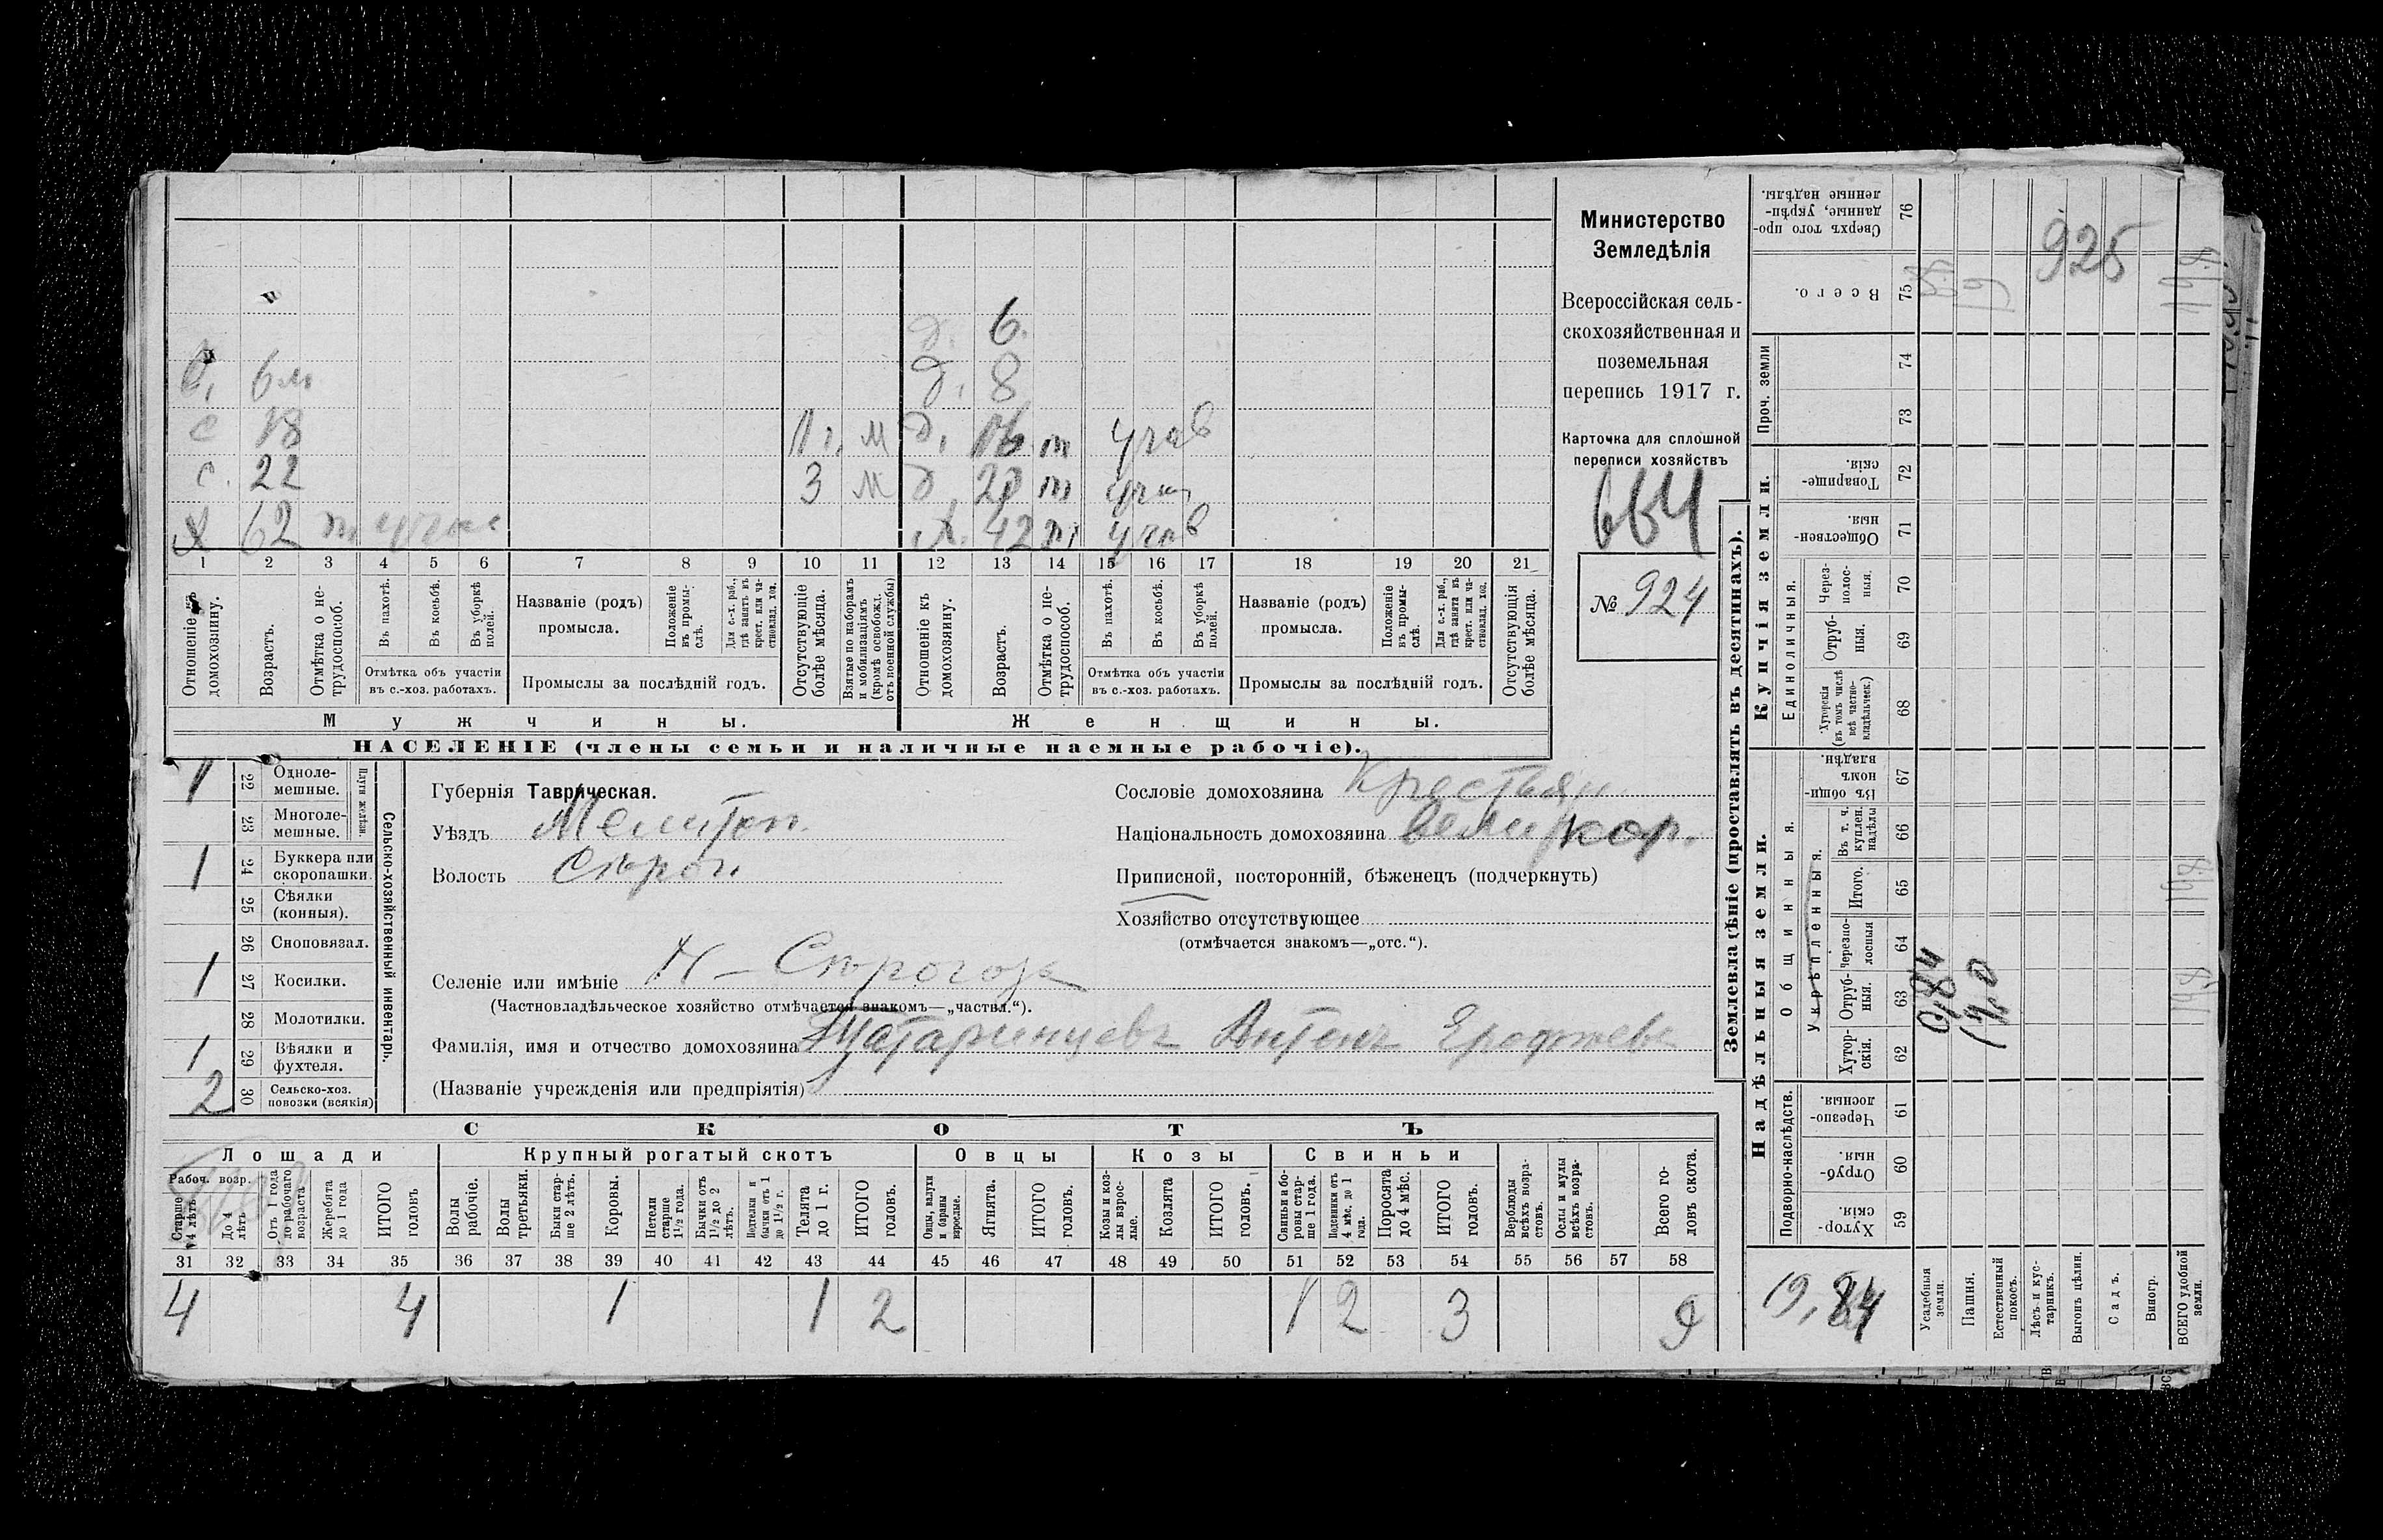 Министерство
Земледѣлія
Всероссійская сель-
скохозяйственная и
поземельная
перепись 1917 г.
Карточка для сплошной
переписи хозяйствъ
664
№ 924
925
д. 6.
с. 6 м д. 8
с 18 м д. 16 т
с. 22 3 м д 20 т
х 62 т х. 42 т
1 2 3 4 5 6 7 8 9 10 11 12 13 14 15 16 17 18 19 20 21
Отношеніе къ домохозяину.
Возрастъ.
Отмѣтка о не-трудоспособ.
Въ пахотѣ.
Въ косьбѣ.
Въ уборкѣ полей.
Отмѣтка объ участіи
въ с.-хоз. работахъ.
Названіе (родъ)
промысла.
Положеніе въ промы-слѣ.
Для с.-х. раб., гдѣ занятъ въ крест. или ча-стновлад. хоз.
Промыслы за послѣдній годъ.
Отсутствующіе болѣе мѣсяца.
Взятые по наборамъ и мобилизаціямъ (кромѣ освобожд. отъ военной службы)
Отношеніе къ домохозяину.
Возрастъ.
Отмѣтка о не-трудоспособ.
Въ пахотѣ.
Въ косьбѣ.
Въ уборкѣ полей.
Отмѣтка объ участіи
въ с.-хоз. работахъ.
Названіе (родъ)
промысла.
Положеніе въ промы-слѣ.
Для с.-х. раб., гдѣ занята въ крест. или ча-стновлад. хоз.
Промыслы за послѣдній годъ.
Отсутствующія болѣе мѣсяца.
Мужчины. Женщины.
НАСЕЛЕНІЕ (члены семьи и наличные наемные рабочіе).
1 22 Одноле-мешные.
23 Многоле-мешные.
Плуги желѣзн.
1 24 Буккера или скоропашки.
25 Сѣялки (конныя).
26 Сноповязал.
1 27 Косилки.
28 Молотилки.
1 29 Вѣялки и фухтеля.
2 30 Сельско-хоз. повозки (всякія)
Сельско-хозяйственный инвентарь.
Губернія Таврическая.
Уѣздъ Мелитоп.
Волость Сѣрог.
Селеніе или имѣніе Н-Сѣрогозы
(Частновладѣльческое хозяйство отмѣчается знакомъ—„частвл.“).
Фамилія, имя и отчество домохозяина Щатаринцевъ Антонъ Ерофѣевъ
(Названіе учрежденія или предпріятія)
Сословіе домохозяина Крестьян
Національность домохозяина великор.
Приписной, посторонній, бѣженецъ (подчеркнуть)
Хозяйство отсутствующее
(отмѣчается знакомъ—„отс.“).
СКОТЪ
Лошади Крупный рогатый скотъ Овцы Козы Свиньи
Рабоч. возр.
Старше 4 лѣтъ
До 4 лѣтъ
Отъ 1 года до рабочаго возраста
Жеребята до 1 года
ИТОГО головъ
Волы рабочіе.
Волы третьяки.
Быки стар-ше 2 лѣтъ.
Коровы.
Нетели старше 1½ года.
Бычки отъ 1½ до 2 лѣтъ.
Подтелки и бычки отъ 1 до 1½ г.
Телята до 1 г.
ИТОГО головъ.
Овцы, валухи и бараны взрослые.
Ягнята.
ИТОГО головъ.
Козы и коз-лы взрос-лые.
Козлята
ИТОГО головъ.
Свиньи и бо-ровы стар-ше 1 года.
Подсвинки отъ 4 мѣс. до 1 года.
Поросята до 4 мѣс.
ИТОГО головъ.
Верблюды всѣхъ возра-стовъ.
Ослы и мулы всѣхъ возра-стовъ.
Всего го-ловъ скота.
31 32 33 34 35 36 37 38 39 40 41 42 43 44 45 46 47 48 49 50 51 52 53 54 55 56 57 58
4 4 1 1 2 1 2 3 9
Землевладѣніе (проставлять въ десятинахъ).
Купчія земли.
Надѣльныя земли.
Сверхъ того про-данные, укрѣп-ленные надѣлы. 76
Всего. 75
Проч. земли 74 73
Товарище-скія. 72
Обществен-ныя. 71
Единоличныя.
Через-полос-ныя. 70
Отруб-ныя. 69
Хуторскія (въ томъ числѣ всѣ частно-владѣльческ.) 68
Въ общи-номъ владѣн. 67
Общинныя.
Укрѣпленныя.
Въ т. ч. куплен. надѣлы 66
Итого. 65
Черезпо-лосныя 64
Отруб-ныя. 63
Хутор-скія. 62
Подворно-наслѣдств.
Черезпо-лосныя. 61
Отруб-ныя. 60
Хутор-скія. 59
0,84
19,0
19,8
19,8
19,8
19,84
Усадебныя земли.
Пашня.
Естественный покосъ.
Лѣсъ и кус-тарникъ.
Выгонъ цѣлин.
Садъ.
Виногр.
ВСЕГО удобной земли.